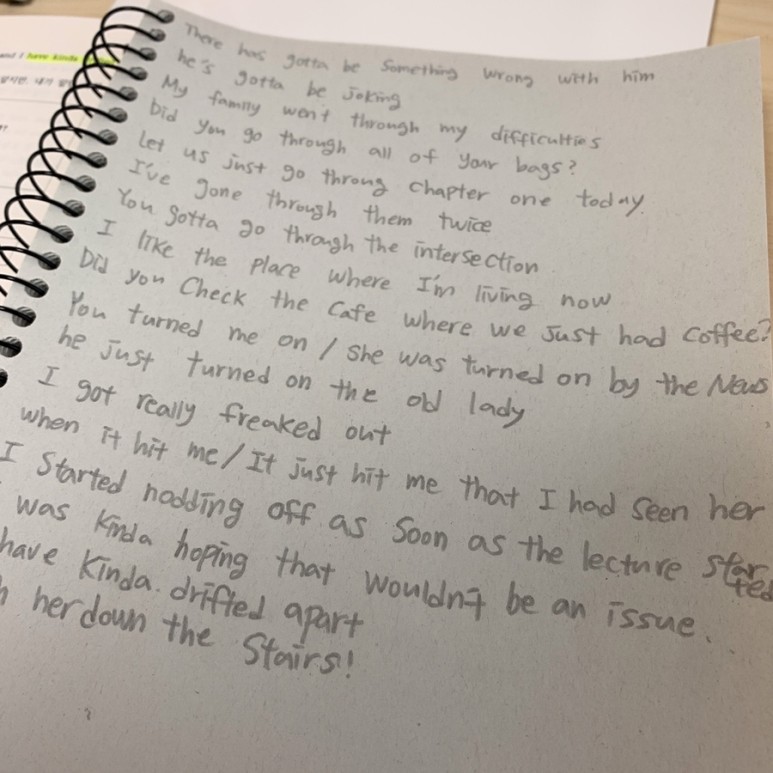 and I have kinda
There has gotta be Something wrong with him
he's gotta be joking
My family went through my difficulties
Did you go through all of your bags?
Let us just go throung chapter one today.
I've gone through them twice
You gotta go through the intersection
I like the place where I'm living now
Did you Check the Cafe where we Just had coffee?
You turned me on / She was turned on by the News
he just turned on the old lady
I got really freaked out
when it hit me / It just hit me that I had seen her
I Started nodding off as soon as the lecture started
was kinda hoping that wouldn't be an issue.
have kinda drifted apart
her down the Stairs!